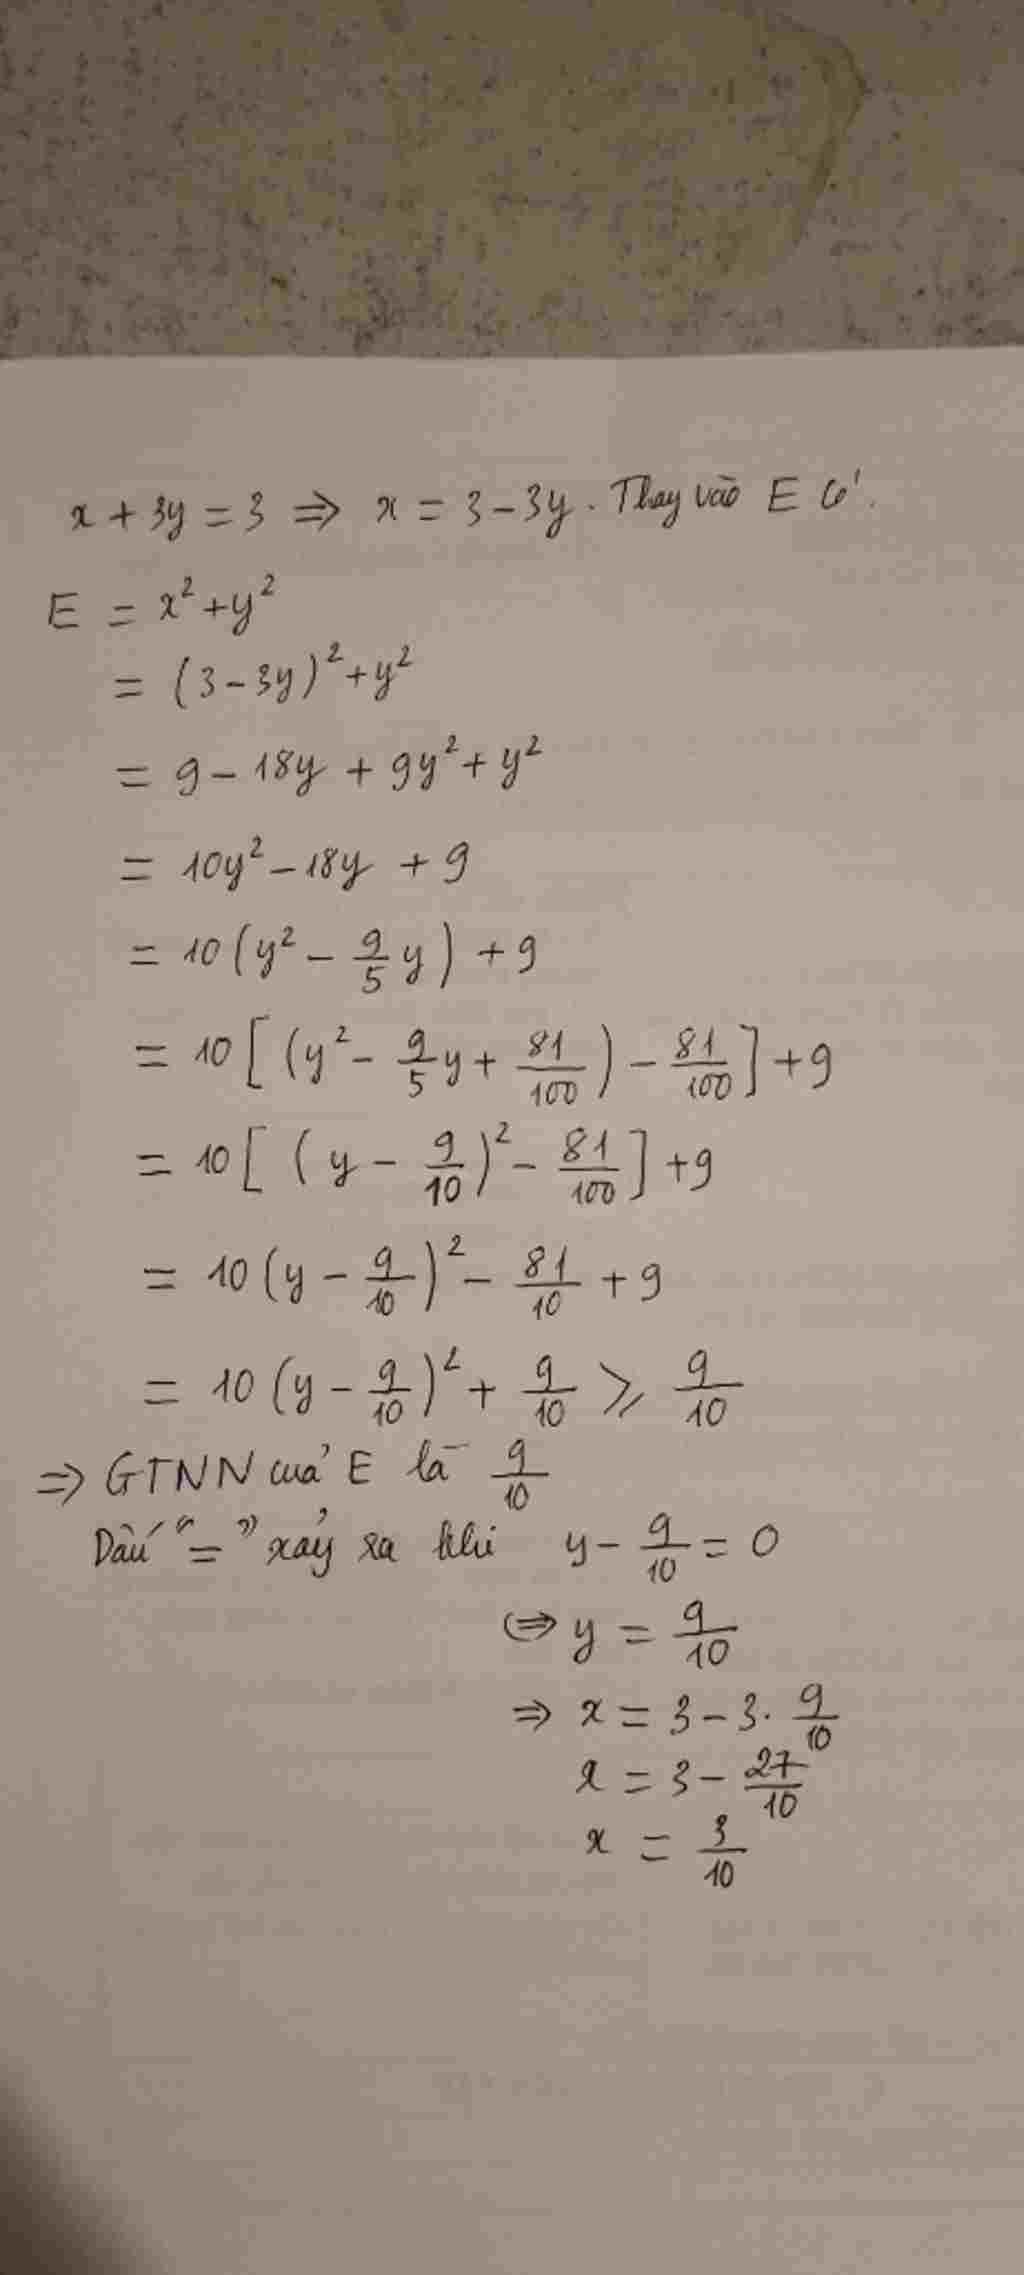 x + 3y = 3 ⇒ x = 3 - 3y. Thay vào E có.
E = x² + y²
= (3 - 3y)² + y²
= 9 - 18y + 9y² + y²
= 10y² - 18y + 9
= 10(y² - 9/5 y) + 9
= 10[(y² - 9/5 y + 81/100) - 81/100] + 9
= 10[(y - 9/10)² - 81/100] + 9
= 10(y - 9/10)² - 81/10 + 9
= 10(y - 9/10)² + 9/10 ⩾ 9/10
⇒ GTNN của E là 9/10
Dấu "=" xảy ra khi y - 9/10 = 0
⇔ y = 9/10
⇒ x = 3 - 3. 9/10
x = 3 - 27/10
x = 3/10